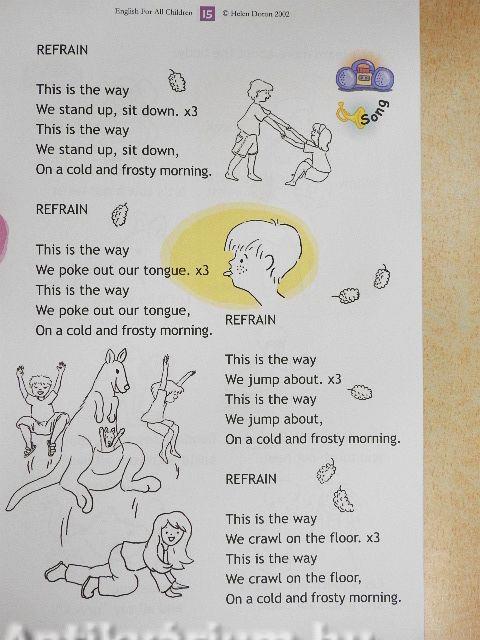 English For All Children 15 © Helen Doron 2002
REFRAIN
This is the way
We stand up, sit down. x3
This is the way
We stand up, sit down,
On a cold and frosty morning.
Song
REFRAIN
This is the way
We poke out our tongue. x3
This is the way
We poke out our tongue,
On a cold and frosty morning.
REFRAIN
This is the way
We jump about. x3
This is the way
We jump about,
On a cold and frosty morning.
REFRAIN
This is the way
We crawl on the floor. x3
This is the way
We crawl on the floor,
On a cold and frosty morning.